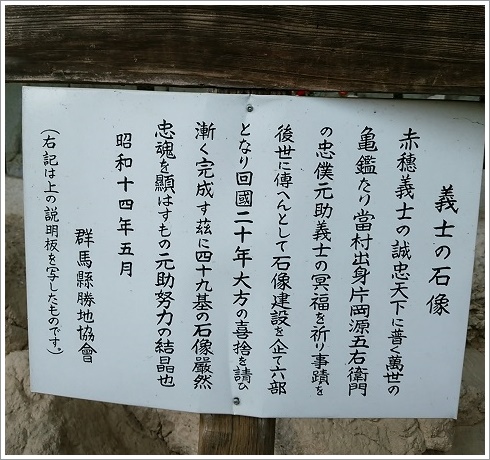 義士の石像
赤穂義士の誠忠天下に普く萬世の
亀鑑たり當村出身片岡源五右衛門
の忠僕元助義士の冥福を祈り事蹟を
後世に傳へんとして石像建設を企て六部
となり回國二十年大方の喜捨を請ひ
漸く完成す茲に四十九基の石像嚴然
忠魂を顯はすもの元助努力の結晶也
昭和十四年五月
群馬縣勝地協會
(右記は上の説明板を写したものです。)